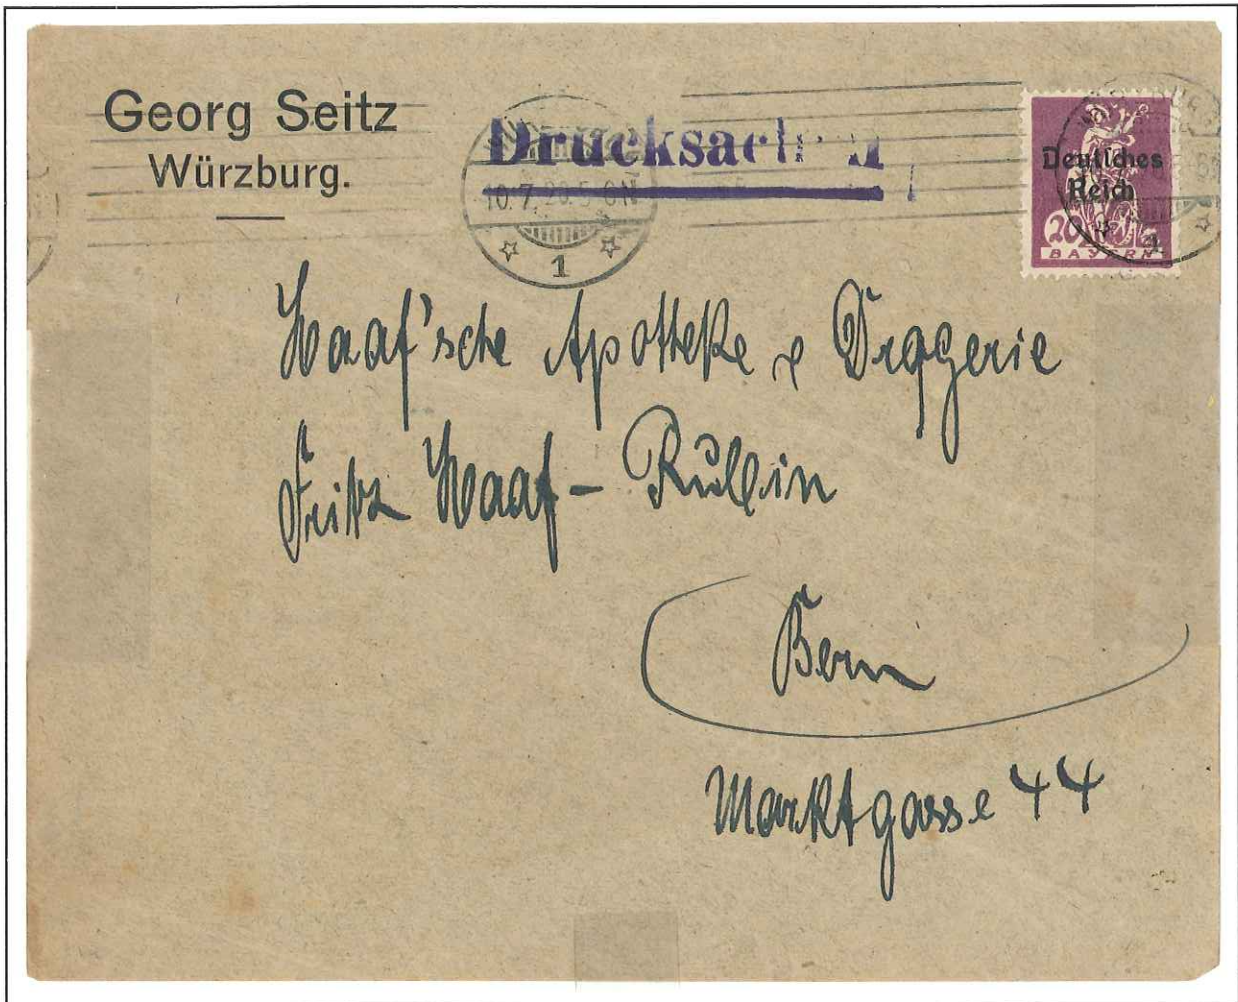 Georg Seitz
Würzburg.
Drucksachen
10.7.20.5-6N
1
Deutsches
Reich
20
BAYERN
1
Haaf'sche Apotheke & Drogerie
Fritz Haaf-
Bern
Marktgasse 44